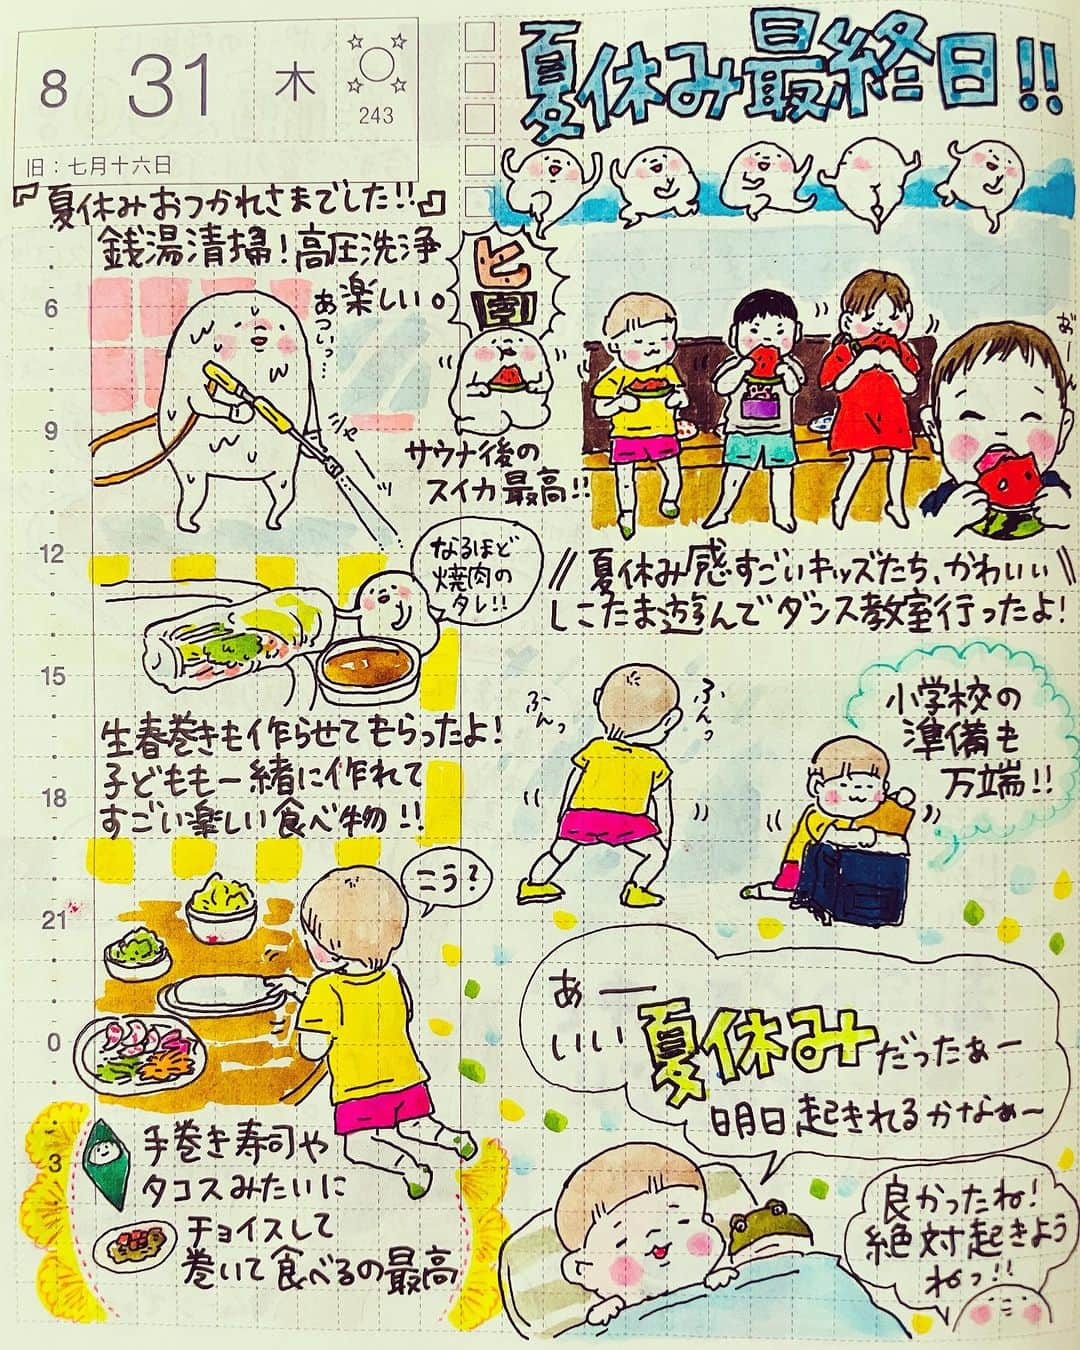 8 31 木
243
旧：七月十六日
夏休み最終日!!
『夏休みおつかれさまでした!!』
銭湯清掃！高圧洗浄
楽しい。
あついっ…
シャーッ
サウナ後の
スイカ最高!!
お〜ん
6
9
12
15
18
21
0
3
なるほど
焼肉の
タレ!!
〃夏休み感すごいキッズたち、かわいい〃
しこたま遊んでダンス教室行ったよ！
生春巻きも作らせてもらったよ！
子どもも一緒に作れて
すごい楽しい食べ物!!
ふんっ
ふんっ
小学校の
準備も
万端!!
こう？
手巻き寿司や
タコスみたいに
チョイスして
巻いて食べるの最高
あー
いい夏休みだったぁー
明日起きれるかなぁ〜
良かったね！
絶対起きよう
ねっ!!